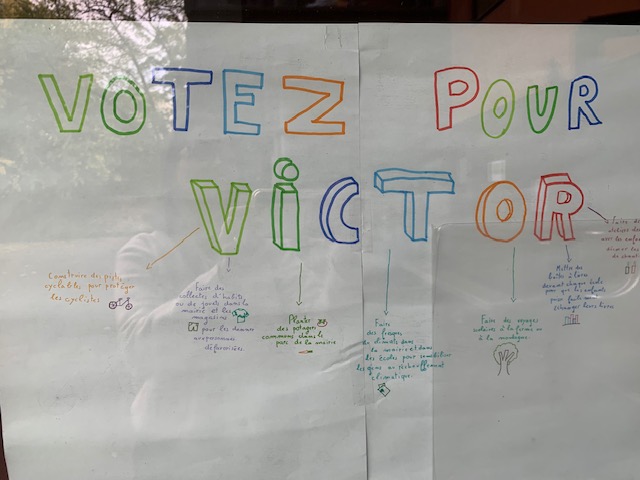 VOTEZ POUR
ViCTOR
Construire des pistes
cyclables pour protéger
les cyclistes
Faire des
collectes d'habits
ou de jouets dans la
mairie et les
magasins
pour les donner
aux personnes
défavorisées.
Planter
des potagers
communs dans le
parc de la mairie
Faire
des fresques
du climat dans
la mairie et dans
les écoles pour sensibiliser
les gens au réchauffement
climatique.
Faire des voyages
scolaires à la ferme ou
à la montagne.
Mettre des
boîtes à livres
devant chaque école
pour que les enfants
échanger leurs livres
à faire
avec les enfants